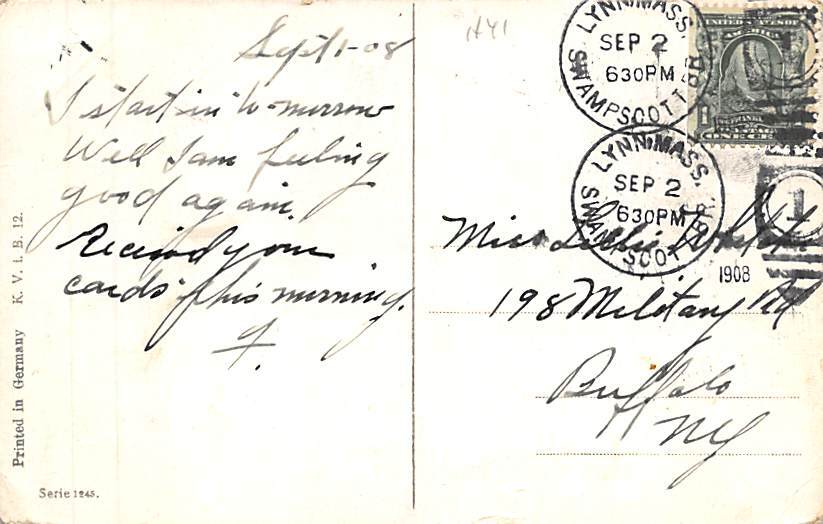 Sept 1-08
I start in to-morrow
Well I am feeling
good again.
Received your
cards this morning.
Printed in Germany K. V. i. B. 12.
Serie 1245.
LYNN, MASS.
SEP 2
630PM
SWAMPSCOTT BR.
UNITED STATES OF
AMERICA
ONE CE
LYNN, MASS.
SEP 2
630PM
SWAMPSCOTT BR.
1
1908
Miss
198 Military Rd
Buffalo
NY